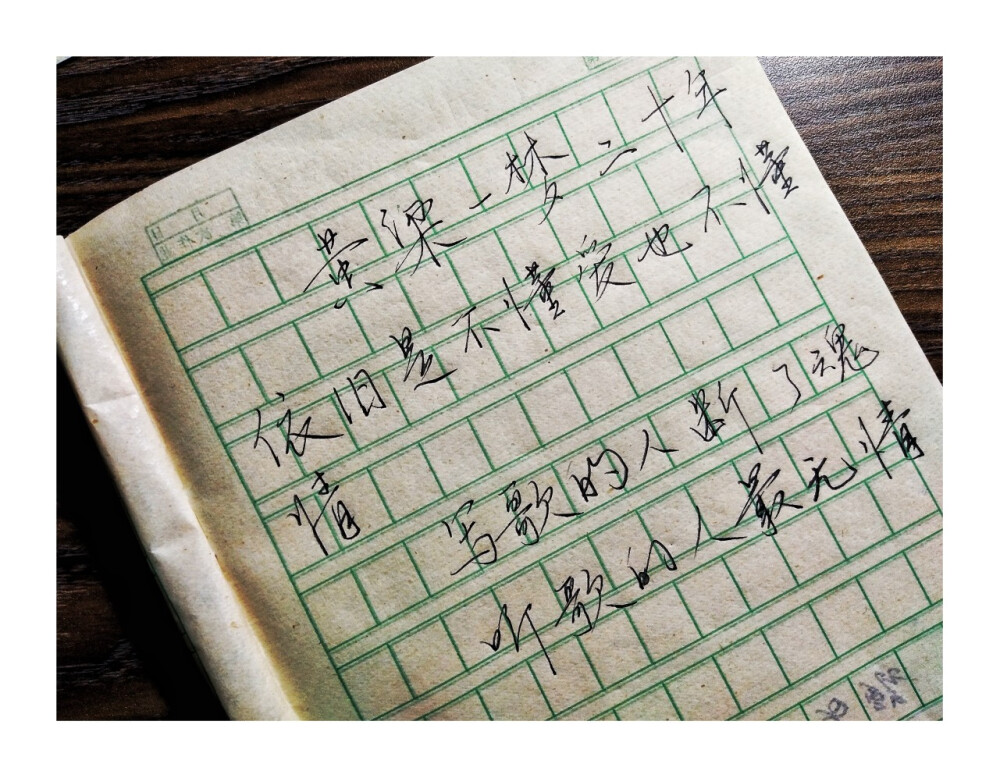 黄梁一梦二十年
依旧是不懂爱也不懂
情
写歌的人断了魂
听歌的人最无情